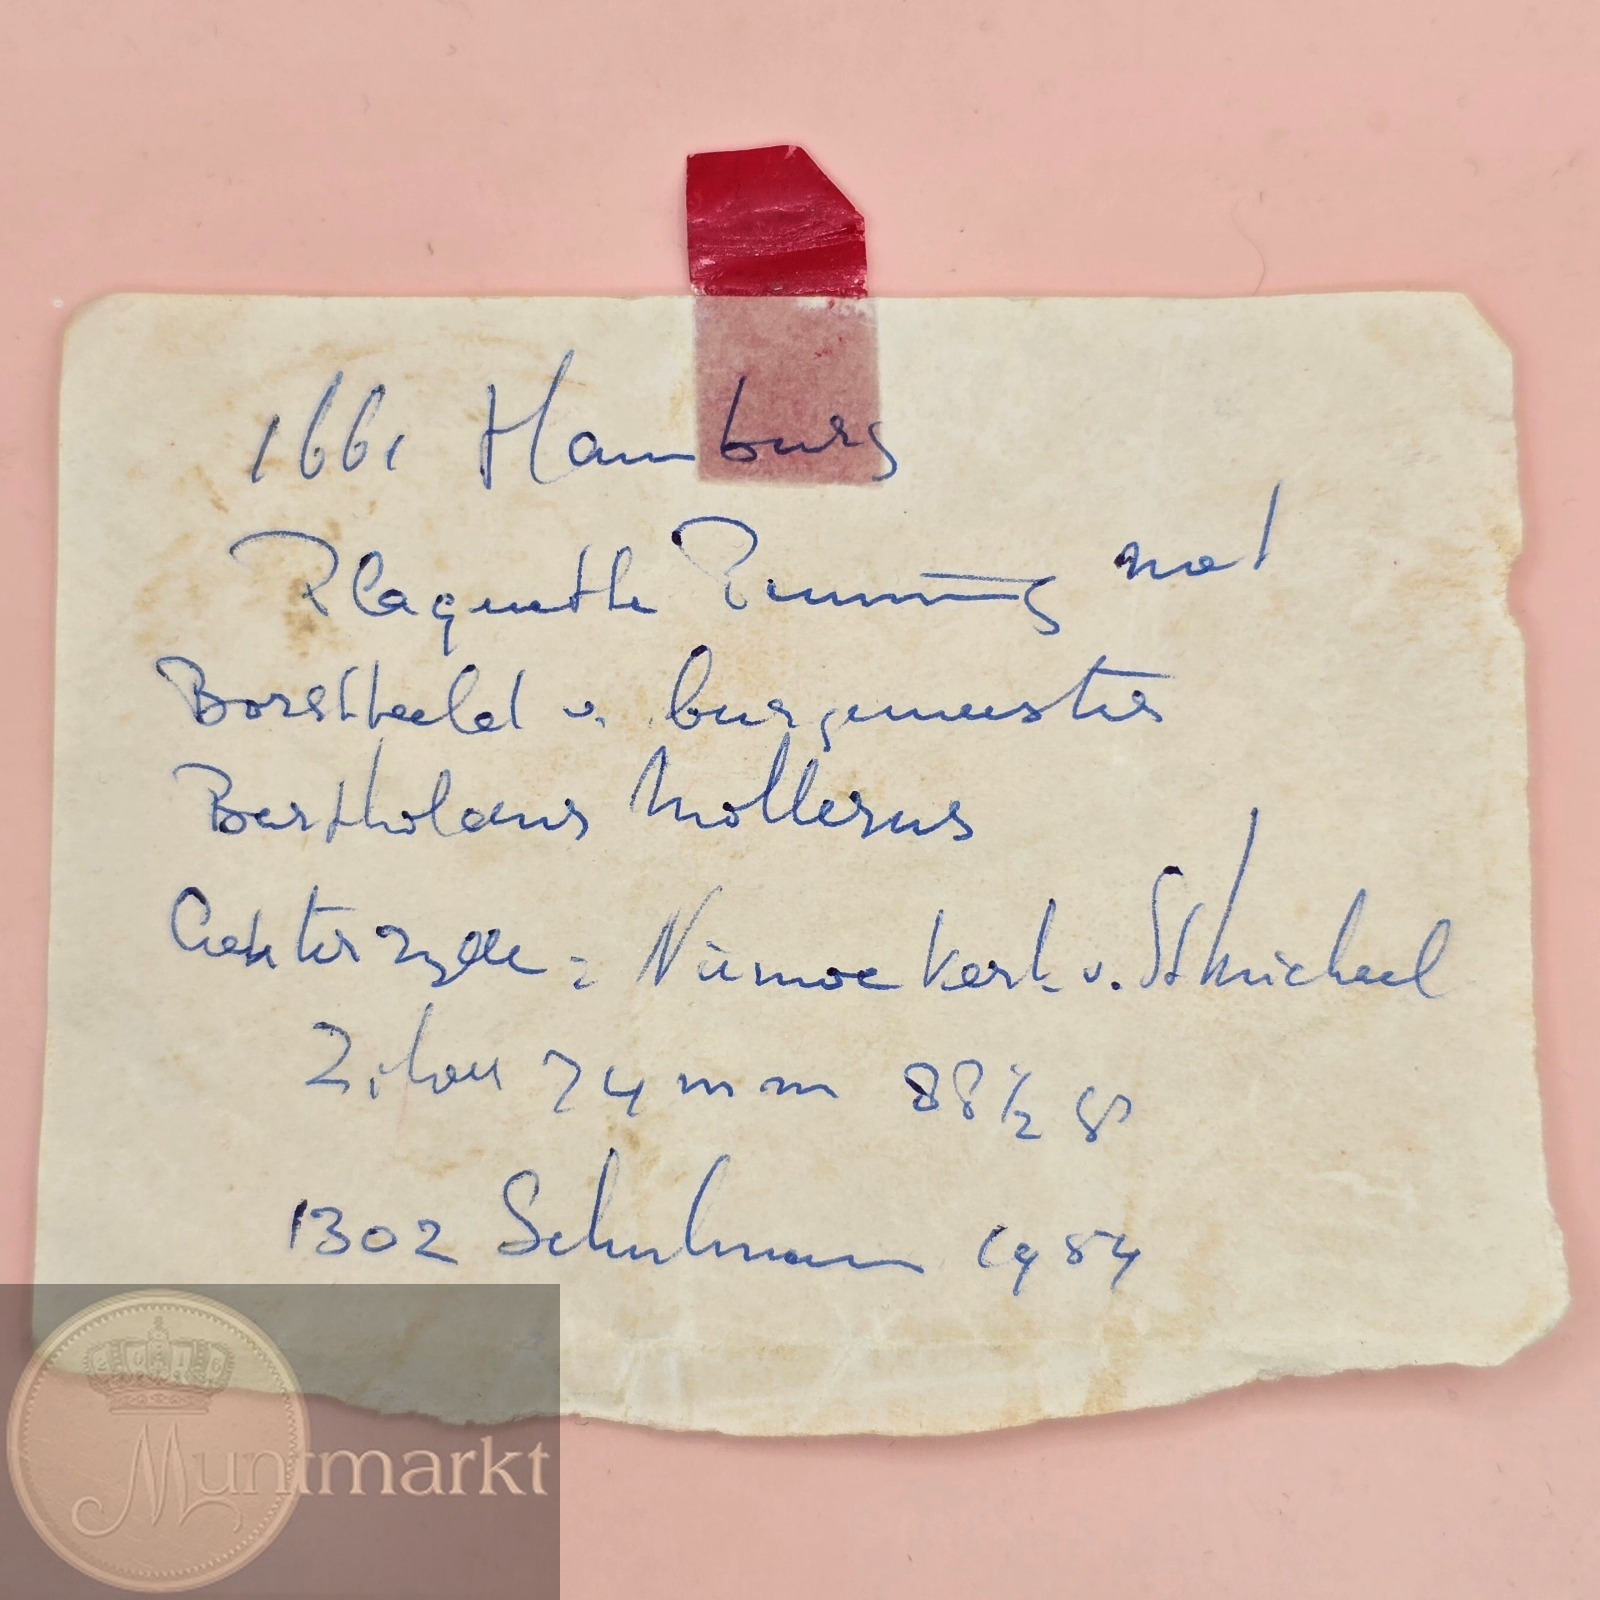 1661 Hamburg
Plaquette Penning met
Borstbeeld v. burgemeester
Bartholdus Mollerus
Achterzyde: Nieuwe Kerk v. St Michael
Zilver 74 mm 88½ gr
1302 Schulman 1984
Muntmarkt